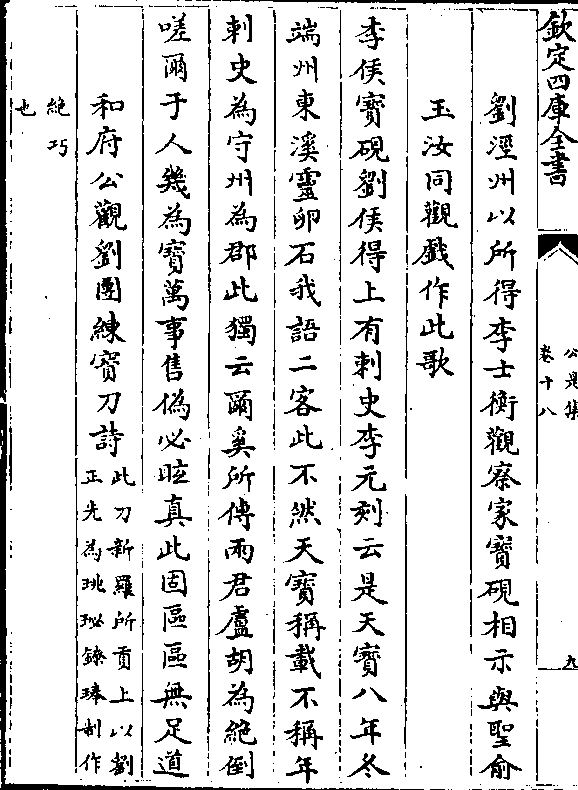 欽定四庫全書
公是集
卷十八
九
劉涇州以所得李士衡觀察家寶硯相示與聖俞
玉汝同觀戲作此歌
李侯寶硯劉侯得上有刺史李元刻云是天寶八年冬
端州東溪靈卵石我語二客此不然天寶稱載不稱年
刺史為守州為郡此獨云爾奚所傳兩君盧胡為絕倒
嗟爾于人幾為寶萬事售偽必眩真此固區區無足道
和府公觀劉團練寶刀詩
此刀新羅所貢上以劉
正先為珧珌鐐琫制作
絕巧
也